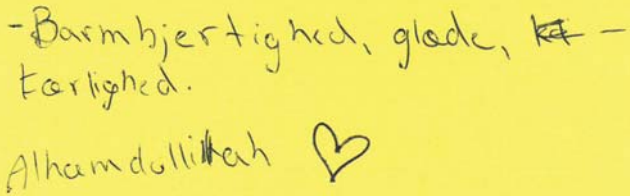 -Barmhjertighed, glæde, -
kærlighed.
Alhamdollillah ♡